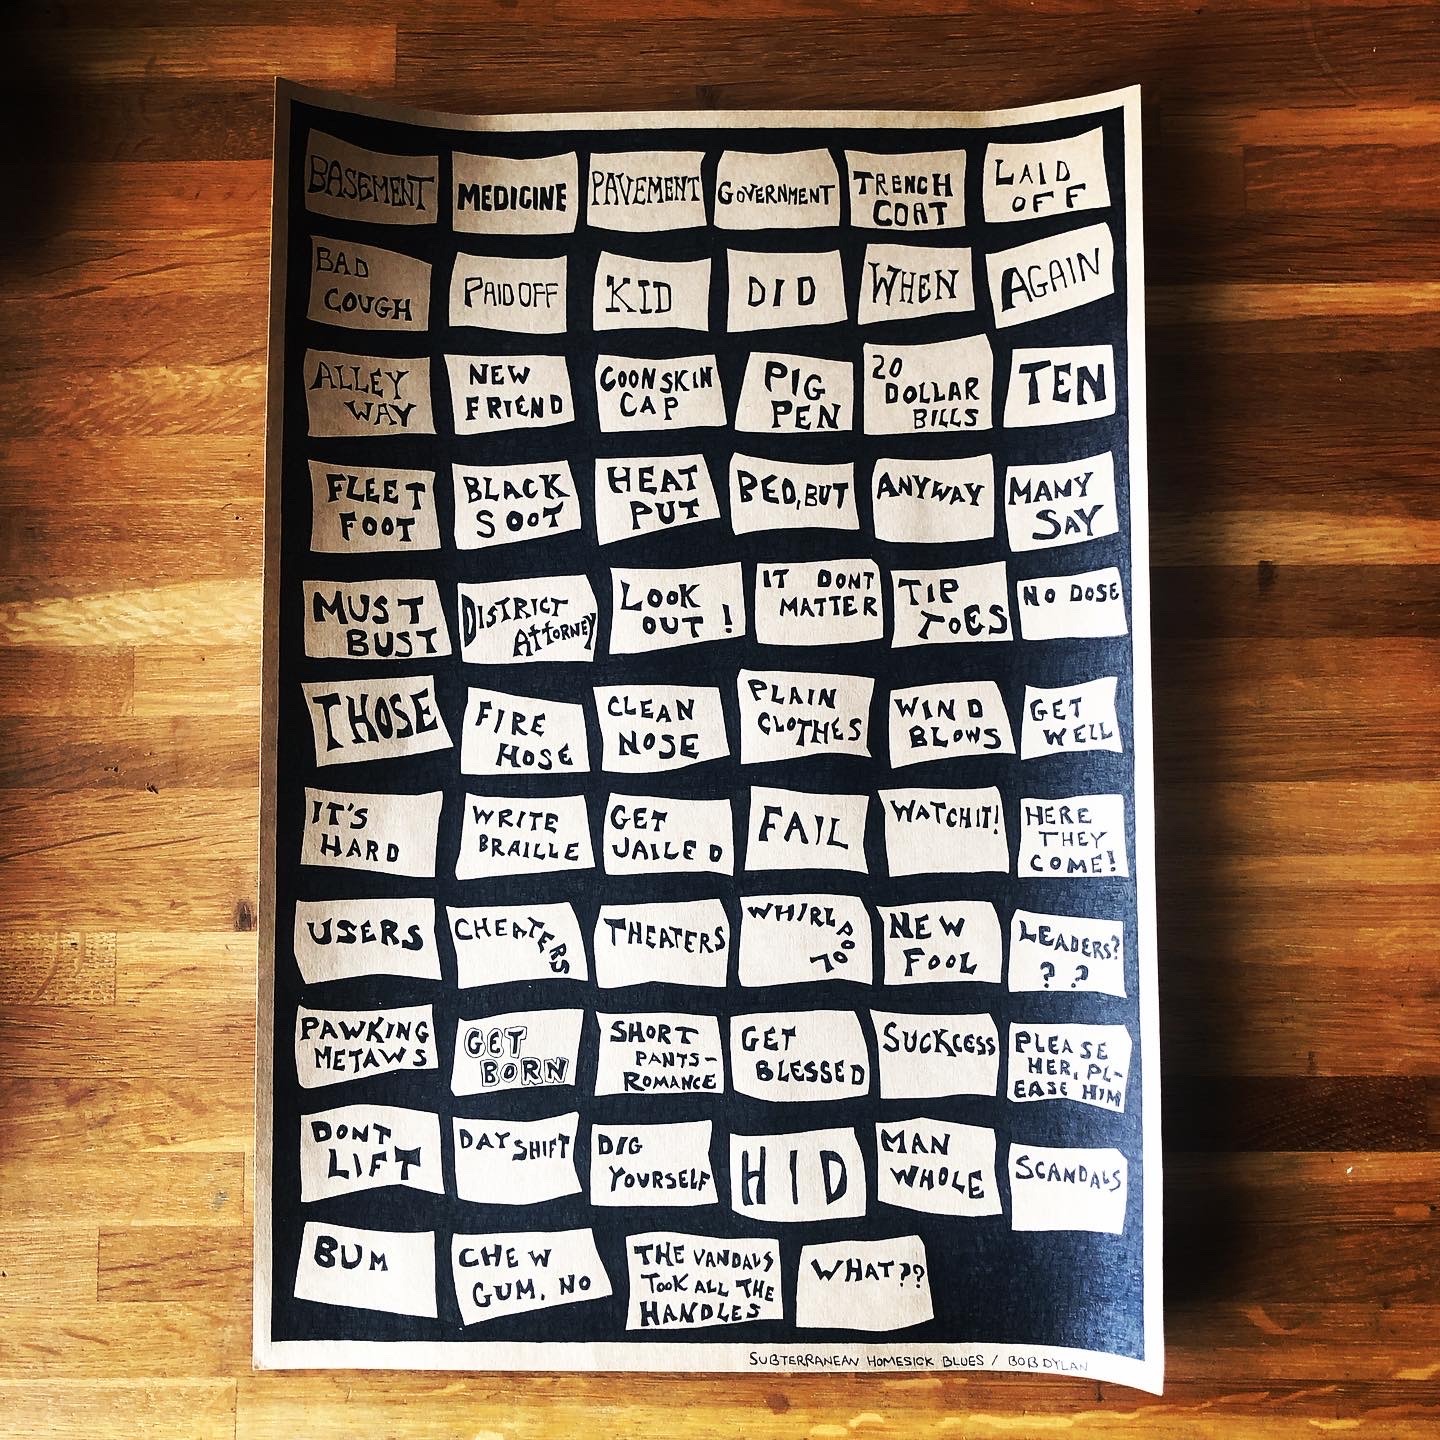 BASEMENT
MEDICINE
PAVEMENT
GOVERNMENT
TRENCH
COAT
LAID
OFF
BAD
COUGH
PAID OFF
KID
DID
WHEN
AGAIN
ALLEY
WAY
NEW
FRIEND
COONSKIN
CAP
PIG
PEN
20
DOLLAR
BILLS
TEN
FLEET
FOOT
BLACK
SOOT
HEAT
PUT
BED, BUT
ANYWAY
MANY
SAY
MUST
BUST
DISTRICT
ATTORNEY
LOOK
OUT !
IT DONT
MATTER
TIP
TOES
NO DOSE
THOSE
FIRE
HOSE
CLEAN
NOSE
PLAIN
CLOTHES
WIND
BLOWS
GET
WELL
IT'S
HARD
WRITE
BRAILLE
GET
JAILED
FAIL
WATCHIT!
HERE
THEY
COME!
USERS
CHEATERS
THEATERS
WHIRLPOOL
NEW
FOOL
LEADERS?
? ?
PAWKING
METAWS
GET
BORN
SHORT
PANTS-
ROMANCE
GET
BLESSED
SUCKCESS
PLEASE
HER, PL-
EASE HIM
DONT
LIFT
DAY SHIFT
DIG
YOURSELF
HID
MAN
WHOLE
SCANDALS
BUM
CHEW
GUM, NO
THE VANDALS
TOOK ALL THE
HANDLES
WHAT??
SUBTERRANEAN HOMESICK BLUES / BOB DYLAN